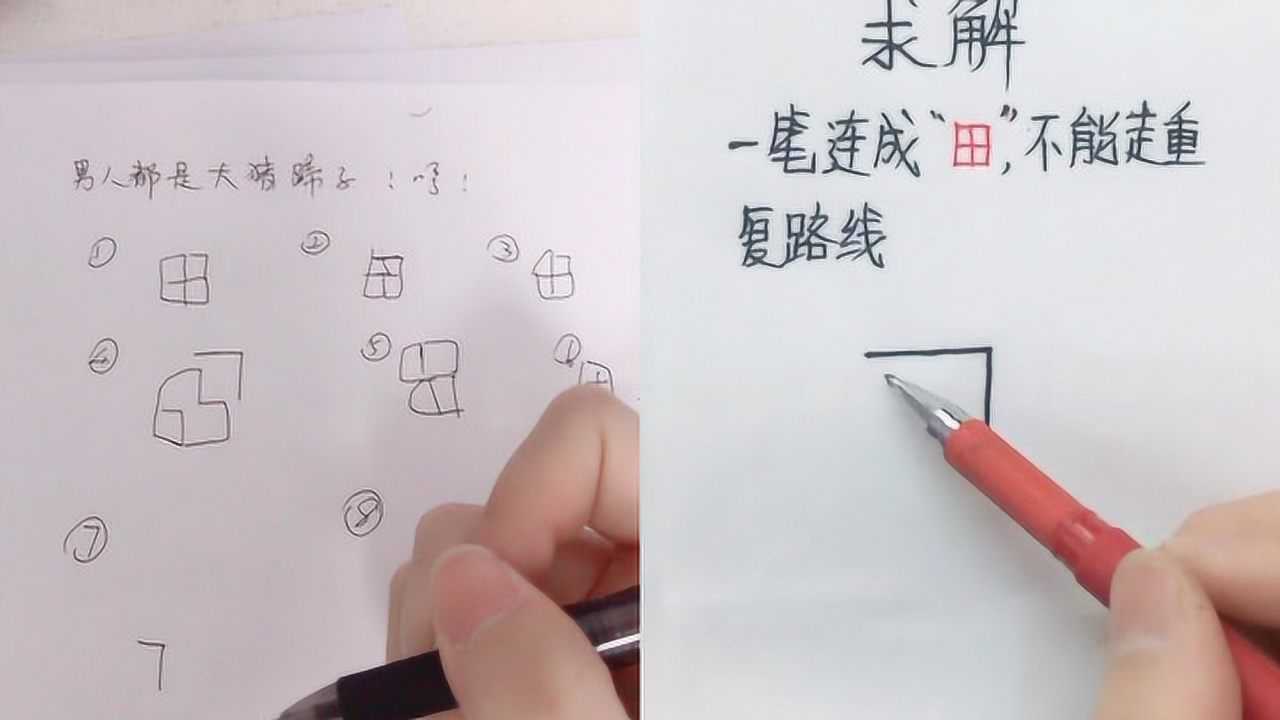 男人都是大猪蹄子！哼！
① ② ③
④ ⑤
⑦ ⑧
求解
一笔连成“田”，不能走重
复路线